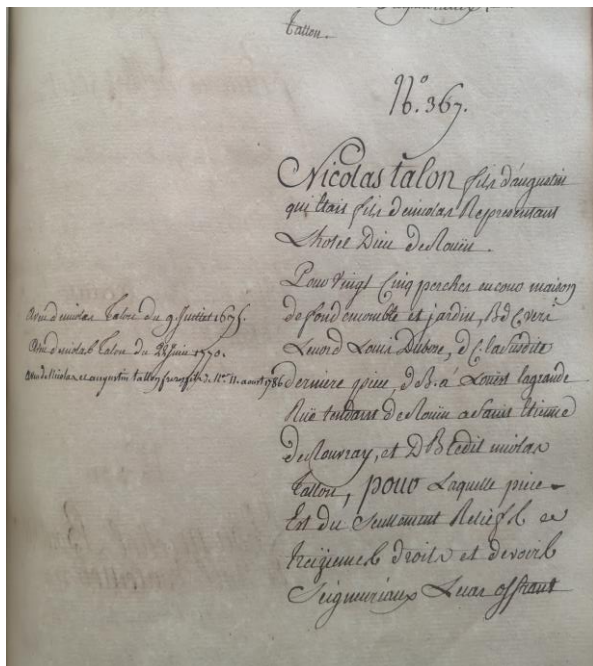 Tallon.
N.º 367.
Nicolas talon fils d'augustin
qui étais fils de nicolas Representant
L'hotel Dieu de Roüen.
Pour vingt Cinq perches en cour maison
de fond en comble et jardin, B d C. vers
Lenord Louis Dubosc, d C. la susdite
derniere piece, d B. à Louest lagrande
Rüe tendant de Roüen a Saint Etienne
de Rouvray, et D B Ledit nicolas
Tallon, pour Laquelle piece
Est du Seullement Reliefs et
treiziemes droits et devoirs
Seigneuriaux Lecas offrant
Aveu de nicolas Talon du 9. Juillet 1675.
Aveu de nicolas Talon du 28 Juin 1770.
aveu de Nicolas et augustin tallon 11. aoust 1786